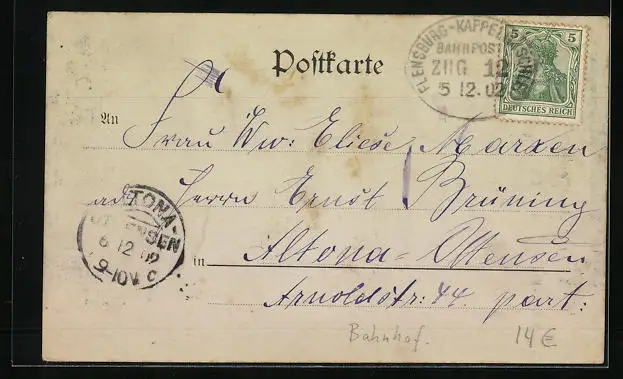 Postkarte
FLENSBURG-KAPPELN
BAHNPOST
ZUG 12
5 12.02
5 5
DEUTSCHES REICH
An
Frau Ww: Eliese Marxen
Herrn Ernst Brüning
in Altona-Ottensen
Arnoldstr: 44 part:
ALTONA-
OTTENSEN
6 12 02
9-10V c
Bahnhof.
14 €